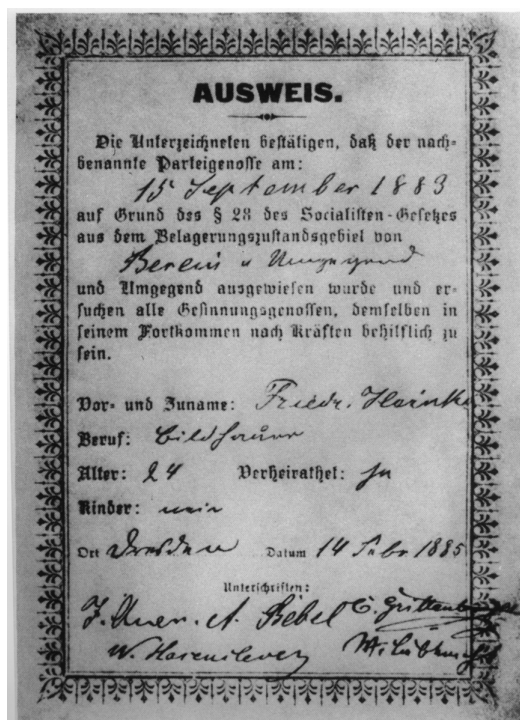 AUSWEIS.
Die Unterzeichneten bestätigen, daß der nach-
benannte Parteigenosse am:
15 September 1883
auf Grund des § 28 des Socialisten-Gesetzes
aus dem Belagerungszustandsgebiet von
Berlin u Umgegend
und Umgegend ausgewiesen wurde und er-
suchen alle Gesinnungsgenossen, demselben in
seinem Fortkommen nach Kräften behilflich zu
sein.
Vor- und Zuname: Friedr. Heinke
Beruf: Bildhauer
Alter: 24 Verheirathet: ja
Kinder: nein
Ort Dresden Datum 14 Febr 1885
Unterschriften:
I. Auer. A. Bebel C. Grillenberger
W. Hasenclever W. Liebknecht